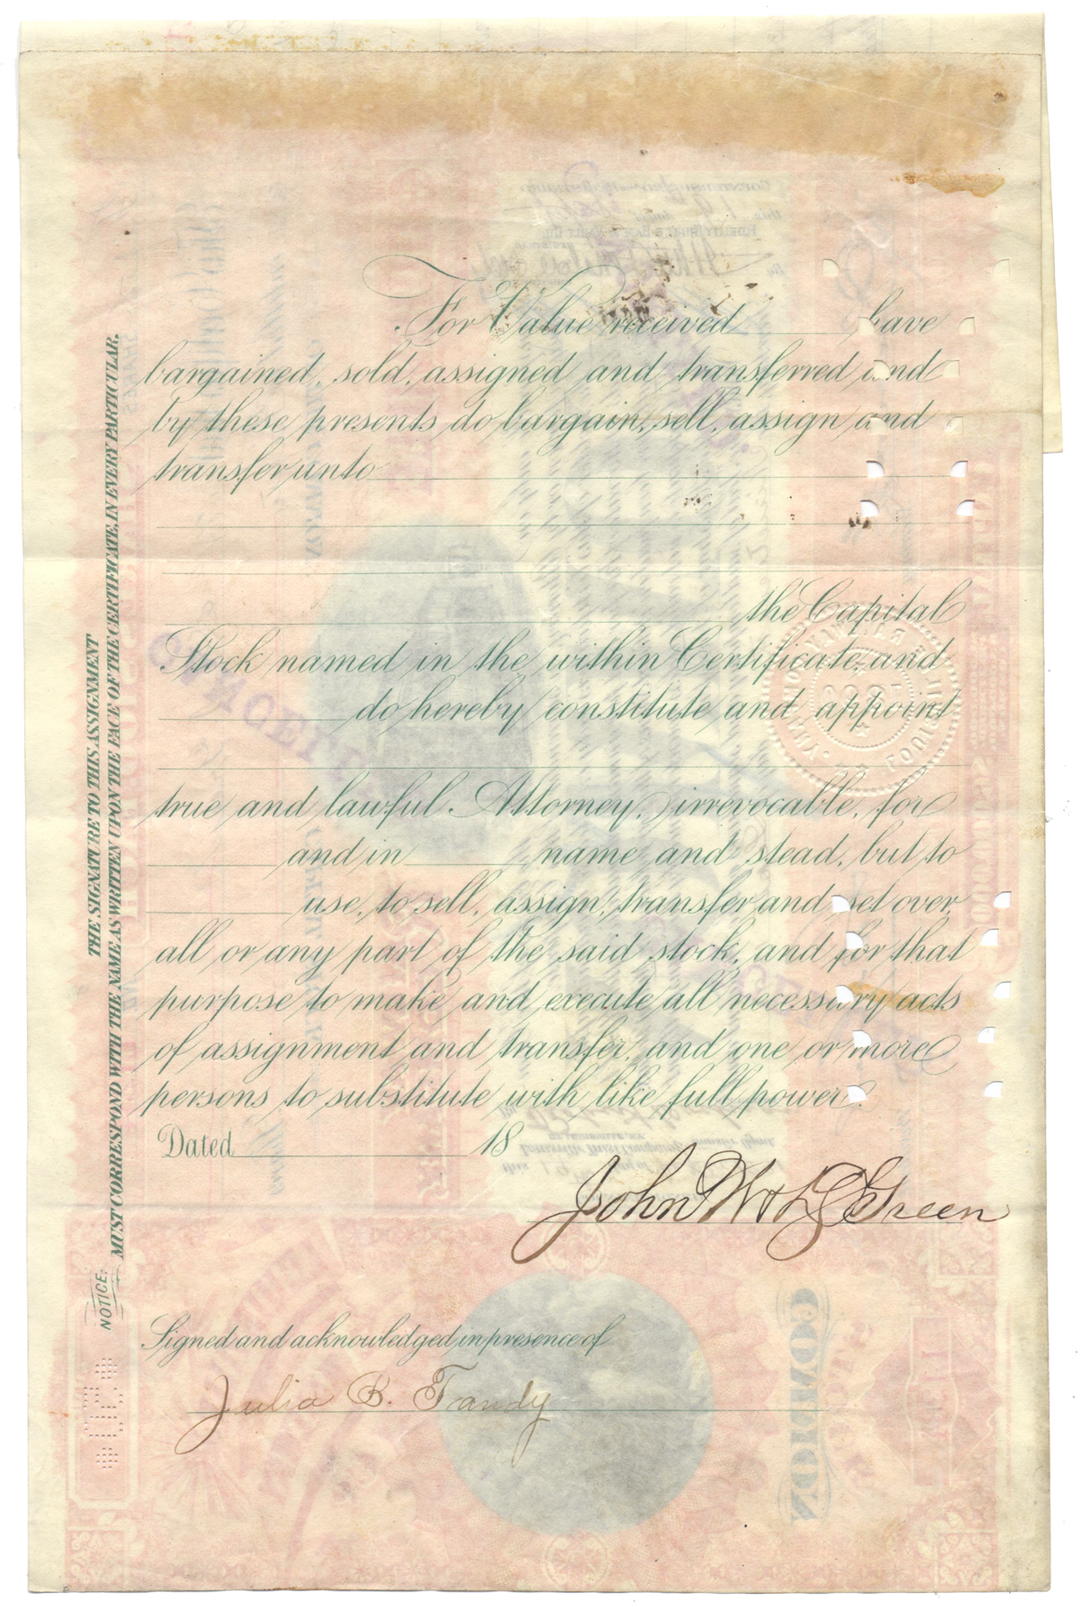 For Value received have
bargained, sold, assigned and transferred and
by these presents do bargain, sell, assign and
transfer unto
the Capital
Stock named in the within Certificate, and
do hereby constitute and appoint
true and lawful Attorney, irrevocable, for
and in name and stead, but to
use, to sell, assign, transfer and set over,
all or any part of the said stock, and for that
purpose to make and execute all necessary acts
of assignment and transfer, and one or more
persons to substitute with like full power.
Dated 18
Green
Signed and acknowledged in presence of
Julia B. Tandy
NOTICE:
THE SIGNATURE TO THIS ASSIGNMENT
MUST CORRESPOND WITH THE NAME AS WRITTEN UPON THE FACE OF THE CERTIFICATE, IN EVERY PARTICULAR.
COMMON